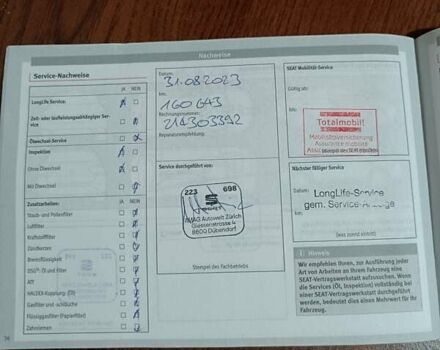 Nachweise
Service-Nachweise
JA NEIN
LongLife Service:
Zeit- oder laufleistungsabhängiger Service
Ölwechsel-Service
Inspektion
Ohne Ölwechsel
Mit Ölwechsel
Zusatzarbeiten: JA NEIN
Staub- und Pollenfilter
Luftfilter
Kraftstofffilter
Zündkerzen
Bremsflüssigkeit
DSG®: Öl und Filter
ATF
HALDEX-Kupplung: (Öl)
Gasfilter und
Flüssiggasfilter (Papierfilter)
Zahnriemen
Datum:
31.08.2023
km:
160 643
Rechnungsnummer:
214303392
Reparaturempfehlung:
Service durchgeführt von:
223 698
AMAG Autowelt Zürich
Giessenstrasse 5
8600 Dübendorf
Stempel des Fachbetriebs
SEAT Mobilitäts-Service
Gültig ab:
bis:
Totalmobil!
Mobilitätsversicherung
Assurance mobilité
Nächster fälliger Service
Datum:
LongLife-Service
km:
gem. Service-Anzeige
(was zuerst eintritt)
Hinweis
Wir empfehlen Ihnen, zur Ausführung jeder
Art von Arbeiten an Ihrem Fahrzeug eine
SEAT-Vertragswerkstatt aufzusuchen. Wenn
die Services (Öl, Inspektion) vollständig bei
einer SEAT-Vertragswerkstatt durchgeführt
werden, bedeutet dies einen Mehrwert für Ihr
Fahrzeug.